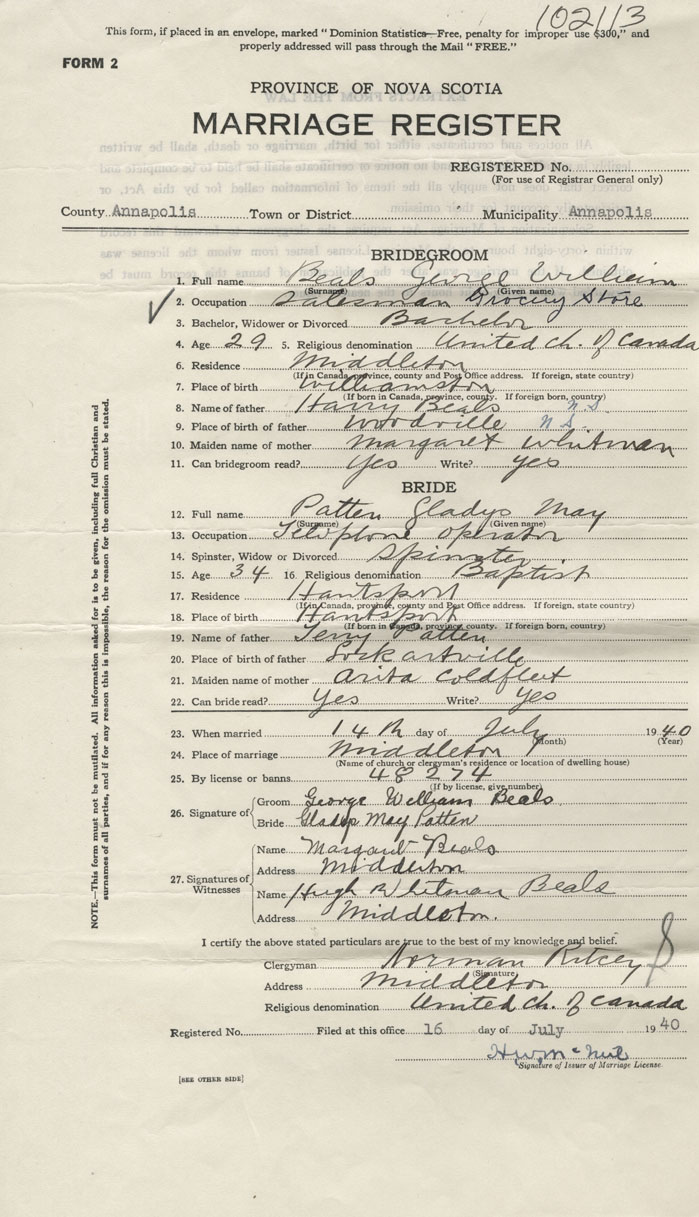 102113
This form, if placed in an envelope, marked "Dominion Statistics—Free, penalty for improper use $300," and
properly addressed will pass through the Mail "FREE."
FORM 2
PROVINCE OF NOVA SCOTIA
MARRIAGE REGISTER
REGISTERED No.
(For use of Registrar General only)
County Annapolis Town or District Municipality Annapolis
BRIDEGROOM
1. Full name Beals George William
(Surname) (Given name)
2. Occupation Salesman Grocery Store
3. Bachelor, Widower or Divorced Bachelor
4. Age 29 5. Religious denomination United Ch. of Canada
6. Residence Middleton
(If in Canada, province, county and Post Office address. If foreign, state country)
7. Place of birth Williamston
(If born in Canada, province, county. If foreign born, country)
8. Name of father Harry Beals N.S.
9. Place of birth of father Woodville N.S.
10. Maiden name of mother Margaret Whitman
11. Can bridegroom read? Yes Write? yes
BRIDE
12. Full name Patten Gladys May
(Surname) (Given name)
13. Occupation Telephone operator
14. Spinster, Widow or Divorced Spinster
15. Age 34 16. Religious denomination Baptist
17. Residence Hantsport
(If in Canada, province, county and Post Office address. If foreign, state country)
18. Place of birth Hantsport
(If born in Canada, province, county. If foreign born, country)
19. Name of father Patten
20. Place of birth of father Lockartville
21. Maiden name of mother Coldfleet
22. Can bride read? Yes Write? Yes
23. When married 14th day of July 1940
(Month) (Year)
24. Place of marriage Middleton
(Name of church or clergyman's residence or location of dwelling house)
25. By license or banns 48274
(If by license, give number)
26. Signature of
Groom George William Beals
Bride Gladys May Patten
27. Signatures of Witnesses
Name Margaret Beals
Address Middleton
Name Hugh Whitman Beals
Address Middleton.
I certify the above stated particulars are true to the best of my knowledge and belief.
Clergyman Norman Ritcey
(Signature)
Address Middleton
Religious denomination United Ch. of Canada
Registered No. Filed at this office 16 day of July 1940
Signature of Issuer of Marriage License
[SEE OTHER SIDE]
NOTE.—This form must not be mutilated. All information asked for is to be given, including full Christian and
surnames of all parties, and if for any reason this is impossible, the reason for the omission must be stated.